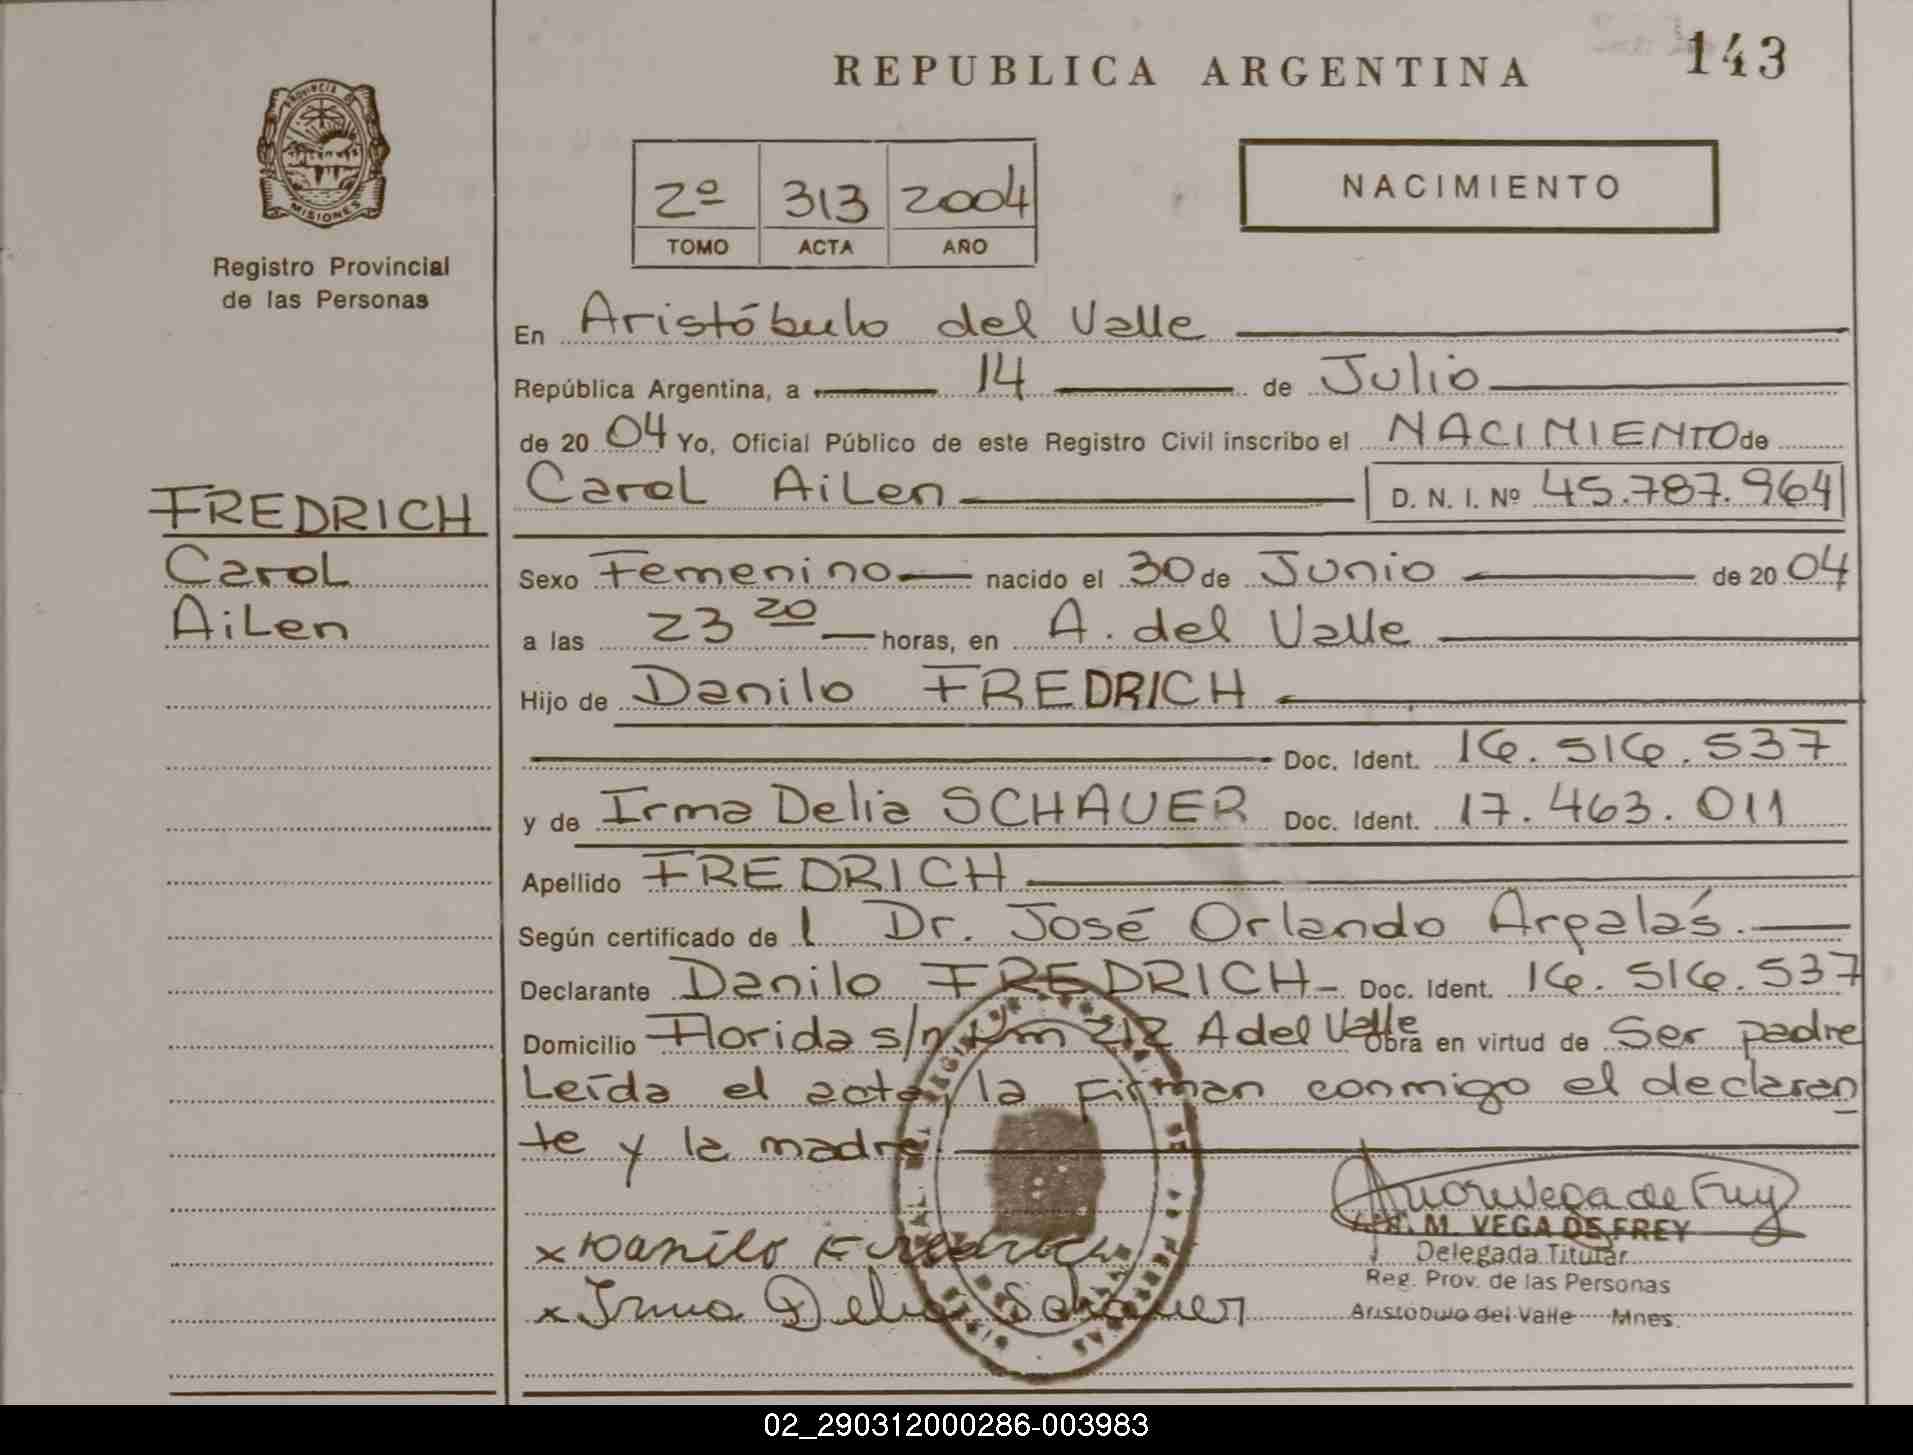 REPUBLICA ARGENTINA
143
PROVINCIA DE
MISIONES
Registro Provincial
de las Personas
2º 313 2004
TOMO ACTA AÑO
NACIMIENTO
En Aristóbulo del Valle
República Argentina, a 14 de Julio
de 20 04 Yo, Oficial Público de este Registro Civil inscribo el NACIMIENTO de
Carol Ailen D. N. I. Nº 45.787.964
FREDRICH
Carol
Ailen
Sexo Femenino nacido el 30 de Junio de 20 04
a las 23 20 horas, en A. del Valle
Hijo de Danilo FREDRICH
Doc. Ident. 16.516.537
y de Irma Delia SCHAUER Doc. Ident. 17.463.011
Apellido FREDRICH
Según certificado de l Dr. José Orlando
Declarante Danilo FREDRICH Doc. Ident. 16.516.537
Domicilio Florida s/n Km 212 A del Valle Obra en virtud de Ser padre
Leída el acta, la firman conmigo el declaran
te y la madre.
x Danilo Fredrich
x Irma Delia Schauer
M. VEGA DE FREY
Delegada Titular
Reg. Prov. de las Personas
Aristóbulo del Valle Mnes.
02_290312000286-003983